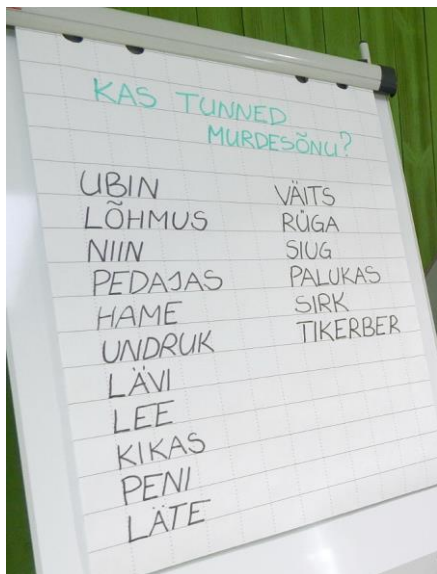 KAS TUNNED
MURDESÕNU?
UBIN
LÕHMUS
NIIN
PEDAJAS
HAME
UNDRUK
LÄVI
LEE
KIKAS
PENI
LÄTE
VÄITS
RÜGA
SIUG
PALUKAS
SIRK
TIKERBER